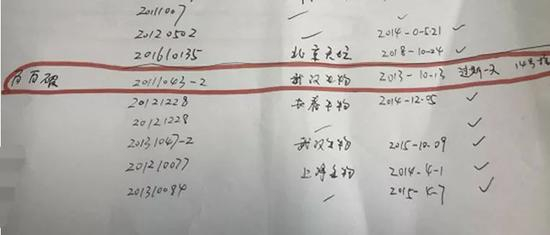 20111007 — ✓
20120502 2014-05-21 ✓
201610135 北京天坛 2018-10-24 ✓
百百破 20111043-2 武汉生物 2013-10-13 过期一天 14号
20121228 长春生物 2014-12-05 ✓
20121228 — ✓
20131047-2 武汉生物 2015-10.09 ✓
201210077 上海生物 2014-4-1 ✓
201310084 — 2015-4-7 ✓